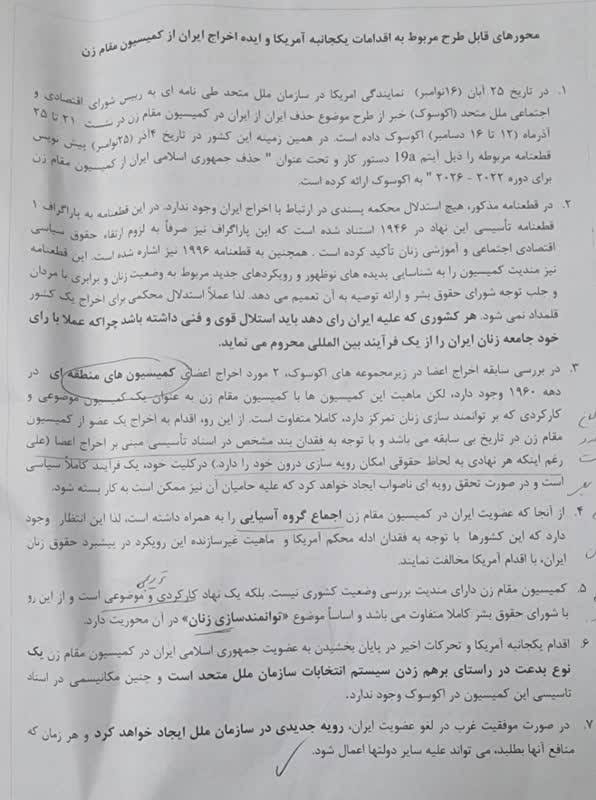 محورهای قابل طرح مربوط به اقدامات یکجانبه آمریکا و ایده اخراج ایران از کمیسیون مقام زن
۱. در تاریخ ۲۵ آبان (۱۶نوامبر) نمایندگی امریکا در سازمان ملل متحد طی نامه ای به رییس شورای اقتصادی و
اجتماعی ملل متحد (اکوسوک) خبر از طرح موضوع حذف ایران از ایران در کمیسیون مقام زن در نشست ۲۱ تا ۲۵
آذرماه (۱۲ تا ۱۶ دسامبر) اکوسوک داده است. در همین زمینه این کشور در تاریخ ۴آذر (۲۵نوامبر) پیش نویس
قطعنامه مربوطه را ذیل آیتم 19a دستور کار و تحت عنوان " حذف جمهوری اسلامی ایران از کمیسیون مقام زن
برای دوره ۲۰۲۲ - ۲۰۲۶ " به اکوسوک ارائه کرده است.
۲. در قطعنامه مذکور، هیچ استدلال محکمه پسندی در ارتباط با اخراج ایران وجود ندارد. در این قطعنامه به پاراگراف ۱
قطعنامه تأسیسی این نهاد در ۱۹۴۶ استناد شده است که این پاراگراف نیز صرفاً به لزوم ارتقاء حقوق سیاسی
اقتصادی اجتماعی و آموزشی زنان تأکید کرده است . همچنین به قطعنامه ۱۹۹۶ نیز اشاره شده است. این قطعنامه
نیز مندیت کمیسیون را به شناسایی پدیده های نوظهور و رویکردهای جدید مربوط به وضعیت زنان و برابری با مردان
و جلب توجه شورای حقوق بشر و ارائه توصیه به آن تعمیم می دهد. لذا عملاً استدلال محکمی برای اخراج یک کشور
قلمداد نمی شود. هر کشوری که علیه ایران رای دهد باید استلال قوی و فنی داشته باشد چراکه عملا با رای
خود جامعه زنان ایران را از یک فرآیند بین المللی محروم می نماید.
۳. در بررسی سابقه اخراج اعضا در زیرمجموعه های اکوسوک، ۲ مورد اخراج اعضای کمیسیون های منطقه ای در
دهه ۱۹۶۰ وجود دارد، لکن ماهیت این کمیسیون ها با کمیسیون مقام زن به عنوان یک کمیسیون موضوعی و
کارکردی که بر توانمند سازی زنان تمرکز دارد، کاملا متفاوت است. از این رو، اقدام به اخراج یک عضو از کمیسیون
مقام زن در تاریخ بی سابقه می باشد و با توجه به فقدان بند مشخص در اسناد تأسیسی مبنی بر اخراج اعضا (علی
رغم اینکه هر نهادی به لحاظ حقوقی امکان رویه سازی درون خود را دارد.) درکلیت خود، یک فرآیند کاملاً سیاسی
است و در صورت تحقق رویه ای ناصواب ایجاد خواهد کرد که علیه حامیان آن نیز ممکن است به کار بسته شود.
۴. از آنجا که عضویت ایران در کمیسیون مقام زن اجماع گروه آسیایی را به همراه داشته است، لذا این انتظار وجود
دارد که این کشورها با توجه به فقدان ادله محکم آمریکا و ماهیت غیرسازنده این رویکرد در پیشبرد حقوق زنان
ایران، با اقدام آمریکا مخالفت نمایند.
۵. کمیسیون مقام زن دارای مندیت بررسی وضعیت کشوری نیست. بلکه یک نهاد کارکردی و موضوعی است و از این رو
با شورای حقوق بشر کاملا متفاوت می باشد و اساساً موضوع «توانمندسازی زنان» در آن محوریت دارد.
۶. اقدام یکجانبه آمریکا و تحرکات اخیر در پایان بخشیدن به عضویت جمهوری اسلامی ایران در کمیسیون مقام زن یک
نوع بدعت در راستای برهم زدن سیستم انتخابات سازمان ملل متحد است و چنین مکانیسمی در اسناد
تاسیسی این کمیسیون در اکوسوک وجود ندارد.
۷. در صورت موفقیت غرب در لغو عضویت ایران، رویه جدیدی در سازمان ملل ایجاد خواهد کرد و هر زمان که
منافع آنها بطلبد، می تواند علیه سایر دولتها اعمال شود.